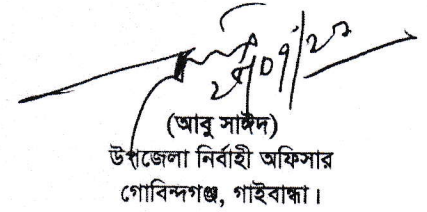 (আবু সাঈদ)
উপজেলা নির্বাহী অফিসার
গোবিন্দগঞ্জ, গাইবান্ধা।